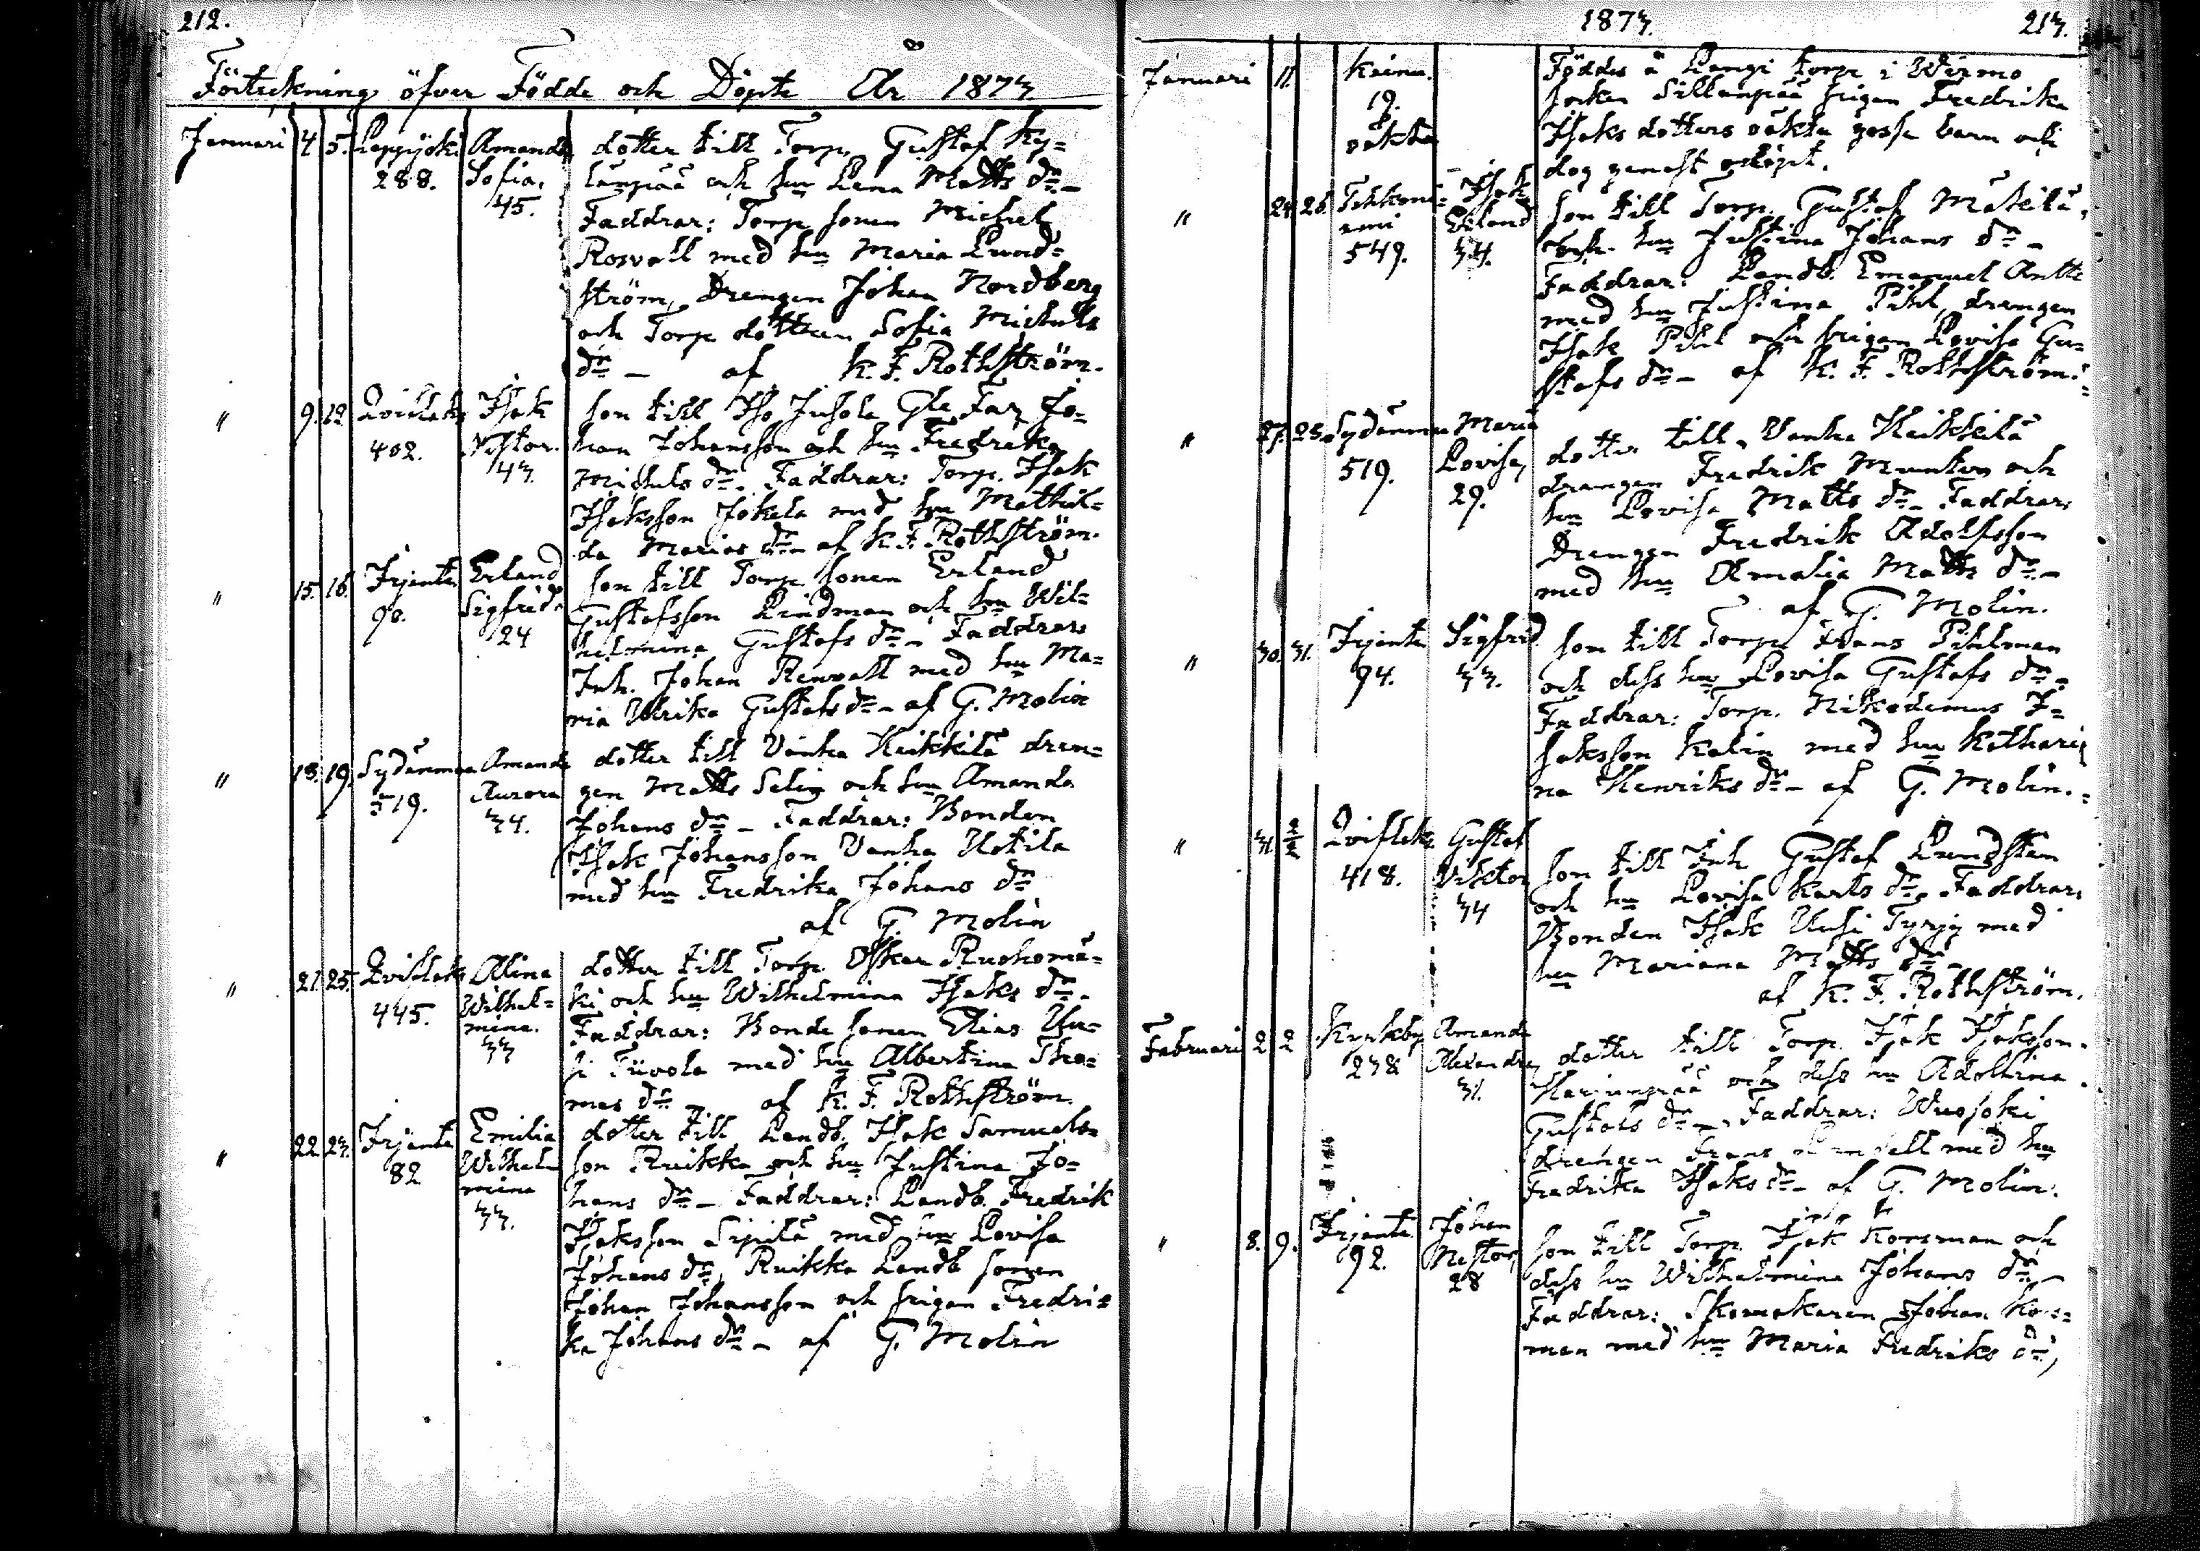 212.
Förteckning öfver Födde och Döpte År 1873.
Januari 4 5. Leppijoki Amanda dotter till Torp. Gustaf Ky=
288. Sofia. länpää och hu Lena Matts dr_
45. Faddrar: Torp sonen Michel
Rosvall med hu Maria Lund=
ström, Drengen Johan Nordberg
och Torp dottren Sofia Michels
dr _ af K. F. Rothström.
" 9. 12. Qvistlaks Isak son till Gle Far Jo=
402. Nestor. han Johansson och hu Fredrika
43. Michels dr. Faddrar: Torp. Isak
Isaksson Jokela med hu Mathil=
da Marias dr_ af K. F. Rothström.
" 15. 16. Irjanta Erland son till Torp. sonen Erland
90. Sigfrid. Gustafsson Lindman och hu Wil=
24 helmina Gustafs dr_ Faddrar
Inh. Johan Renvall med hu Ma=
ria Ulrika Gustafs dr_ af G. Molin
" 18. 19. Sydänmaa Amanda dotter till Vanha Heikkilä dren=
519. Aurora gen Matts Selin och hu Amanda
34. Johans dr _ Faddrar: Bonden
Isak Johansson Vanha Uotila
med hu Fredrika Johans dr
af G. Molin
" 21. 25. Qvistlaks Alina dotter till Torp. Oskar Ruohomä=
445. Wilhel= ki och hu Wilhelmina Isaks dr.
mina. Faddrar: Bonde sonen Elias Uu=
33 si Tuvola med hu Albertina Tho=
mas dr _ af K. F. Rothström.
" 22. 23. Irjanta Emilia dotter till Landb. Isak Samuels=
82 Wilhel son Ruikka och hu Justina Jo=
mina hans dr_ Faddrar: Landb. Fredrik
33. Isaksson Sipilä med hu Lovisa
Johans dr, Ruikka Landb sonen
Johan Johansson och pigan Fredri=
ka Johans dr_ af G. Molin
1873. 213.
Januari 11. Keinu. Föddes å Langi torp i Wirmo
19. socken Sillanpää pigan Fredrika
oäkta Isaks dotters oäkta gosse barn och
dog genast odöpt.
" 24. 26. Isak son till Torp. Gustaf Mäkilä
549. Erland och hu Justina Johans dr _
34. Faddrar: Landb. Emanuel Antti
med hu Justina Pihl, drengen
Isak Pihl och pigan Lovisa Gu=
stafs dr_ af K. F. Rothström.
" 27. 28. Sydänmaa Maria dotter till Vanha Heikkilä
519. Lovisa, drengen Fredrik Munter och
29. hu Lovisa Matts dr_ Faddrar
Drengen Fredrik Adolfsson
med hu Amalia Matts dr_
af G. Molin.
" 30. 31. Irjanta Sigfrid. son till Torp. Frans Pihlman
94. 33. och dess hu Lovisa Gustafs dr_
Faddrar: Torp. Nikodemus I=
saksson Kalin med hu Kathari
na Henriks dr_ af G. Molin.
" 31. 2/2 Qvistlaks Gustaf son till Inh. Gustaf Lundsten
418. Viktor och hu Lovisa Karls dr. Faddrar
34 Bonden Isak Uusi Tyrjy med
hu Mariana Matts dr_
af K. F. Rothström.
Februari 2 2 Kyrkby Amanda dotter till Torp. Isak Isaksson
238 Alexandra Harjunpää och dess hu Adolfina
31. Gustafs dr_. Faddrar: Wuojoki
drengen Frans med hu
Fredrika Isaks dr_ af G. Molin.
" 8. 9. Irjanta Johan son till Torp. Isak Korsman och
92. Nestor, dess hu Wilhelmina Johans dr_
28 Faddrar: Skomakaren Johan Kors=
man med hu Maria Fredriks dr,